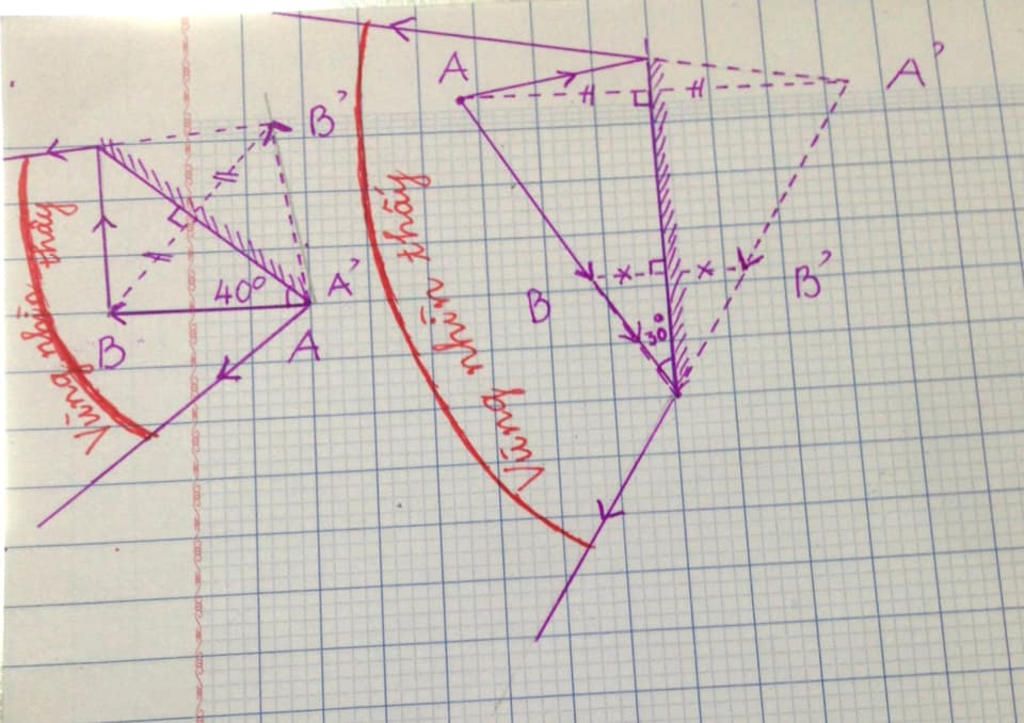 B'
A'
40°
B
A
Vùng nhìn thấy
A
A'
B
B'
30°
Vùng nhìn thấy